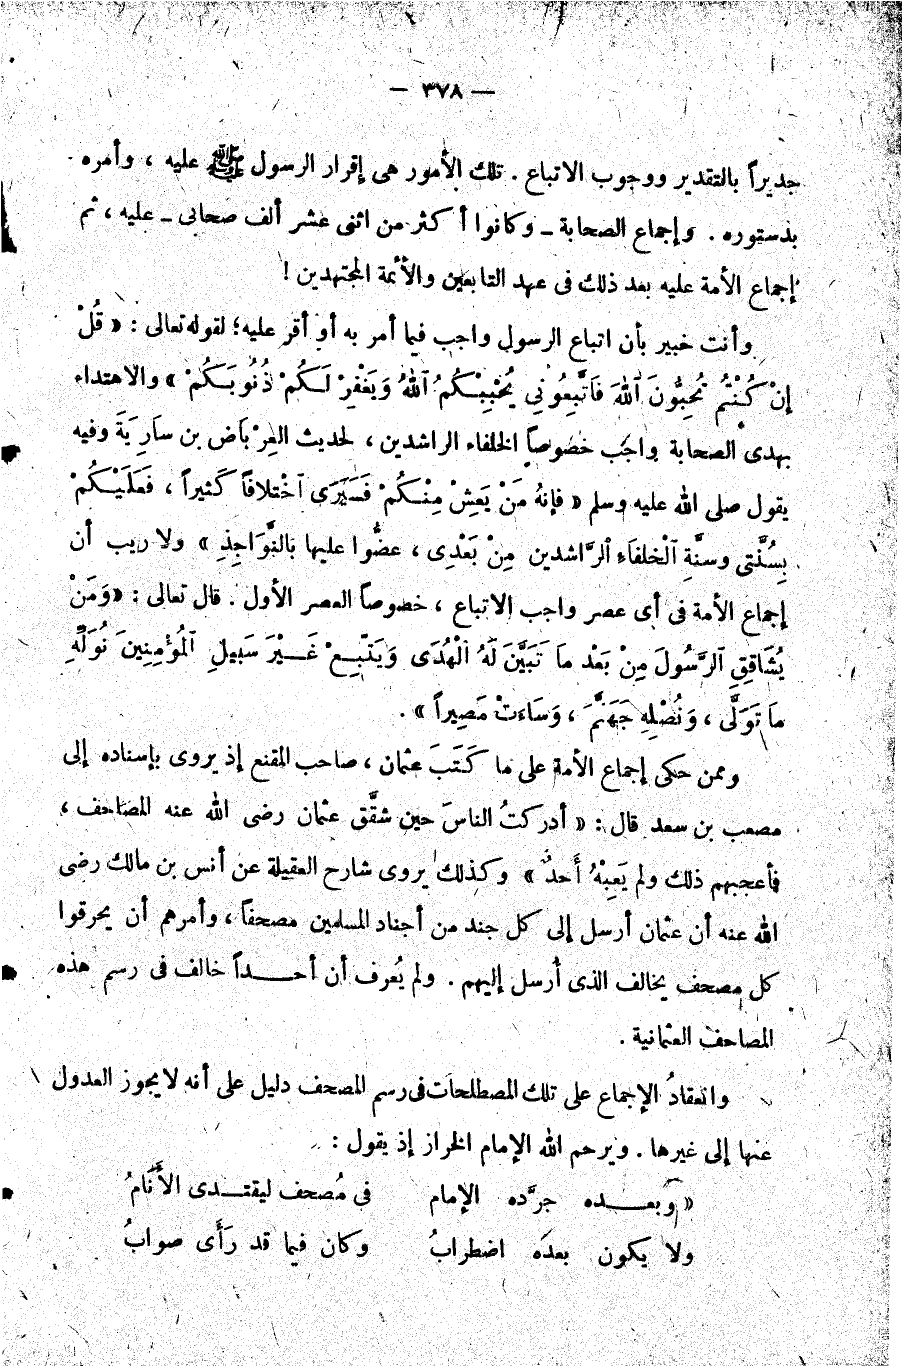 — ٣٧٨ —
جديراً بالتقدير ووجوب الاتباع . تلك الأمور هى إقرار الرسول ﷺ عليه ، وأمره
بدستوره . وإجماع الصحابة ـ وكانوا أكثر من اثنى عشر ألف صحابى ـ عليه ، ثم
إجماع الأمة عليه بعد ذلك فى عهد التابعين والأئمة المجتهدين !
وأنت خبير بأن اتباع الرسول واجب فيما أمر به أو أقر عليه؛ لقوله تعالى : « قُلْ
إِنْ كُنْتُم تُحِبُّونَ ٱللهَ فَاتَّبِعُونِي يُحْبِبْكُمُ ٱللهُ وَيَغْفِرْ لَكُمْ ذُنُوبَكُمْ » والاهتداء
بهدى الصحابة واجب خصوصاً الخلفاء الراشدين ، لحديث العِرْباَض بن سارِيَةَ وفيه
يقول صلى الله عليه وسلم « فإنهُ مَنْ يَعِشْ مِنْكُمْ فَسَيَرَى ٱخْتلافاً كَثيراً ، فَعَلَيْكُمْ
بِسُنَّتى وسنَّةِ ٱلْخلفاَءِ ٱلرَّاشدين مِنْ بَعْدِى ، عضُّوا عليها بالنَّوَاجِذِ » ولا ريب أن
إجماع الأمة فى أى عصر واجب الاتباع ، خصوصاً العصر الأول . قال تعالى : «وَمَنْ
يُشَاقِقِ ٱلرَّسُولَ مِنْ بَعْد ماَ تَبَيَّنَ لَهُ ٱلْهُدَى وَيَتَّبِعْ غَيْرَ سَبِيلِ ٱلمُؤْمِنِينَ نُوَلِّهِ
ماَ تَوَلَّى ، وَنُصْلِهِ جَهَنَّمَ ، وَسَاءَتْ مَصِيراً » .
وممن حكى إجماع الأمة على ما كَتَبَ عثمان ، صاحب المقنع إذ يروى بإسناده إلى
مصعب بن سعد قال : « أدركتُ الناسَ حين شقَّق عثمان رضى الله عنه المصاحف ،
فأعجبهم ذلك ولم يَعِبْهُ أَحدٌ » وكذلك يروى شارح العقيلة عن أنس بن مالك رضى
الله عنه أن عثمان أرسل إلى كل جند من أجناد المسلمين مصحفاً ، وأمرهم أن يحرقوا
كل مصحف يخالف الذى أرسل إليهم . ولم يُعرف أن أحـــداً خالف فى رسم هذه
المصاحف العثمانية .
وانعقادُ الإجماع على تلك المصطلحات فى رسم المصحف دليل على أنه لا يجوز العدول
عنها إلى غيرها . ويرحم الله الإمام الخراز إذ يقول :
« وبعـــده جرَّده الإمام فى مُصحف ليقتـــدى الأَنَامُ
ولا يكون بعدَه اضطرابُ وكان فيما قد رَأَى صوابُ